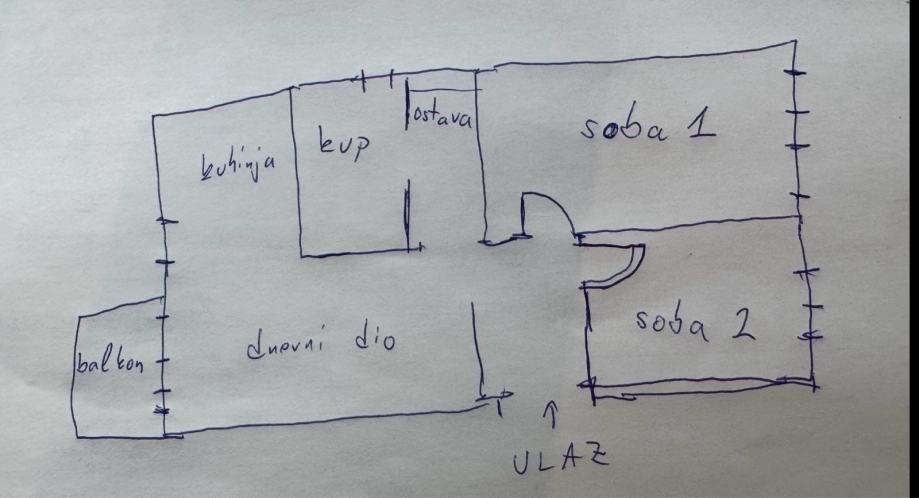 kuhinja
kup
ostava
soba 1
balkon
dnevni dio
soba 2
ULAZ